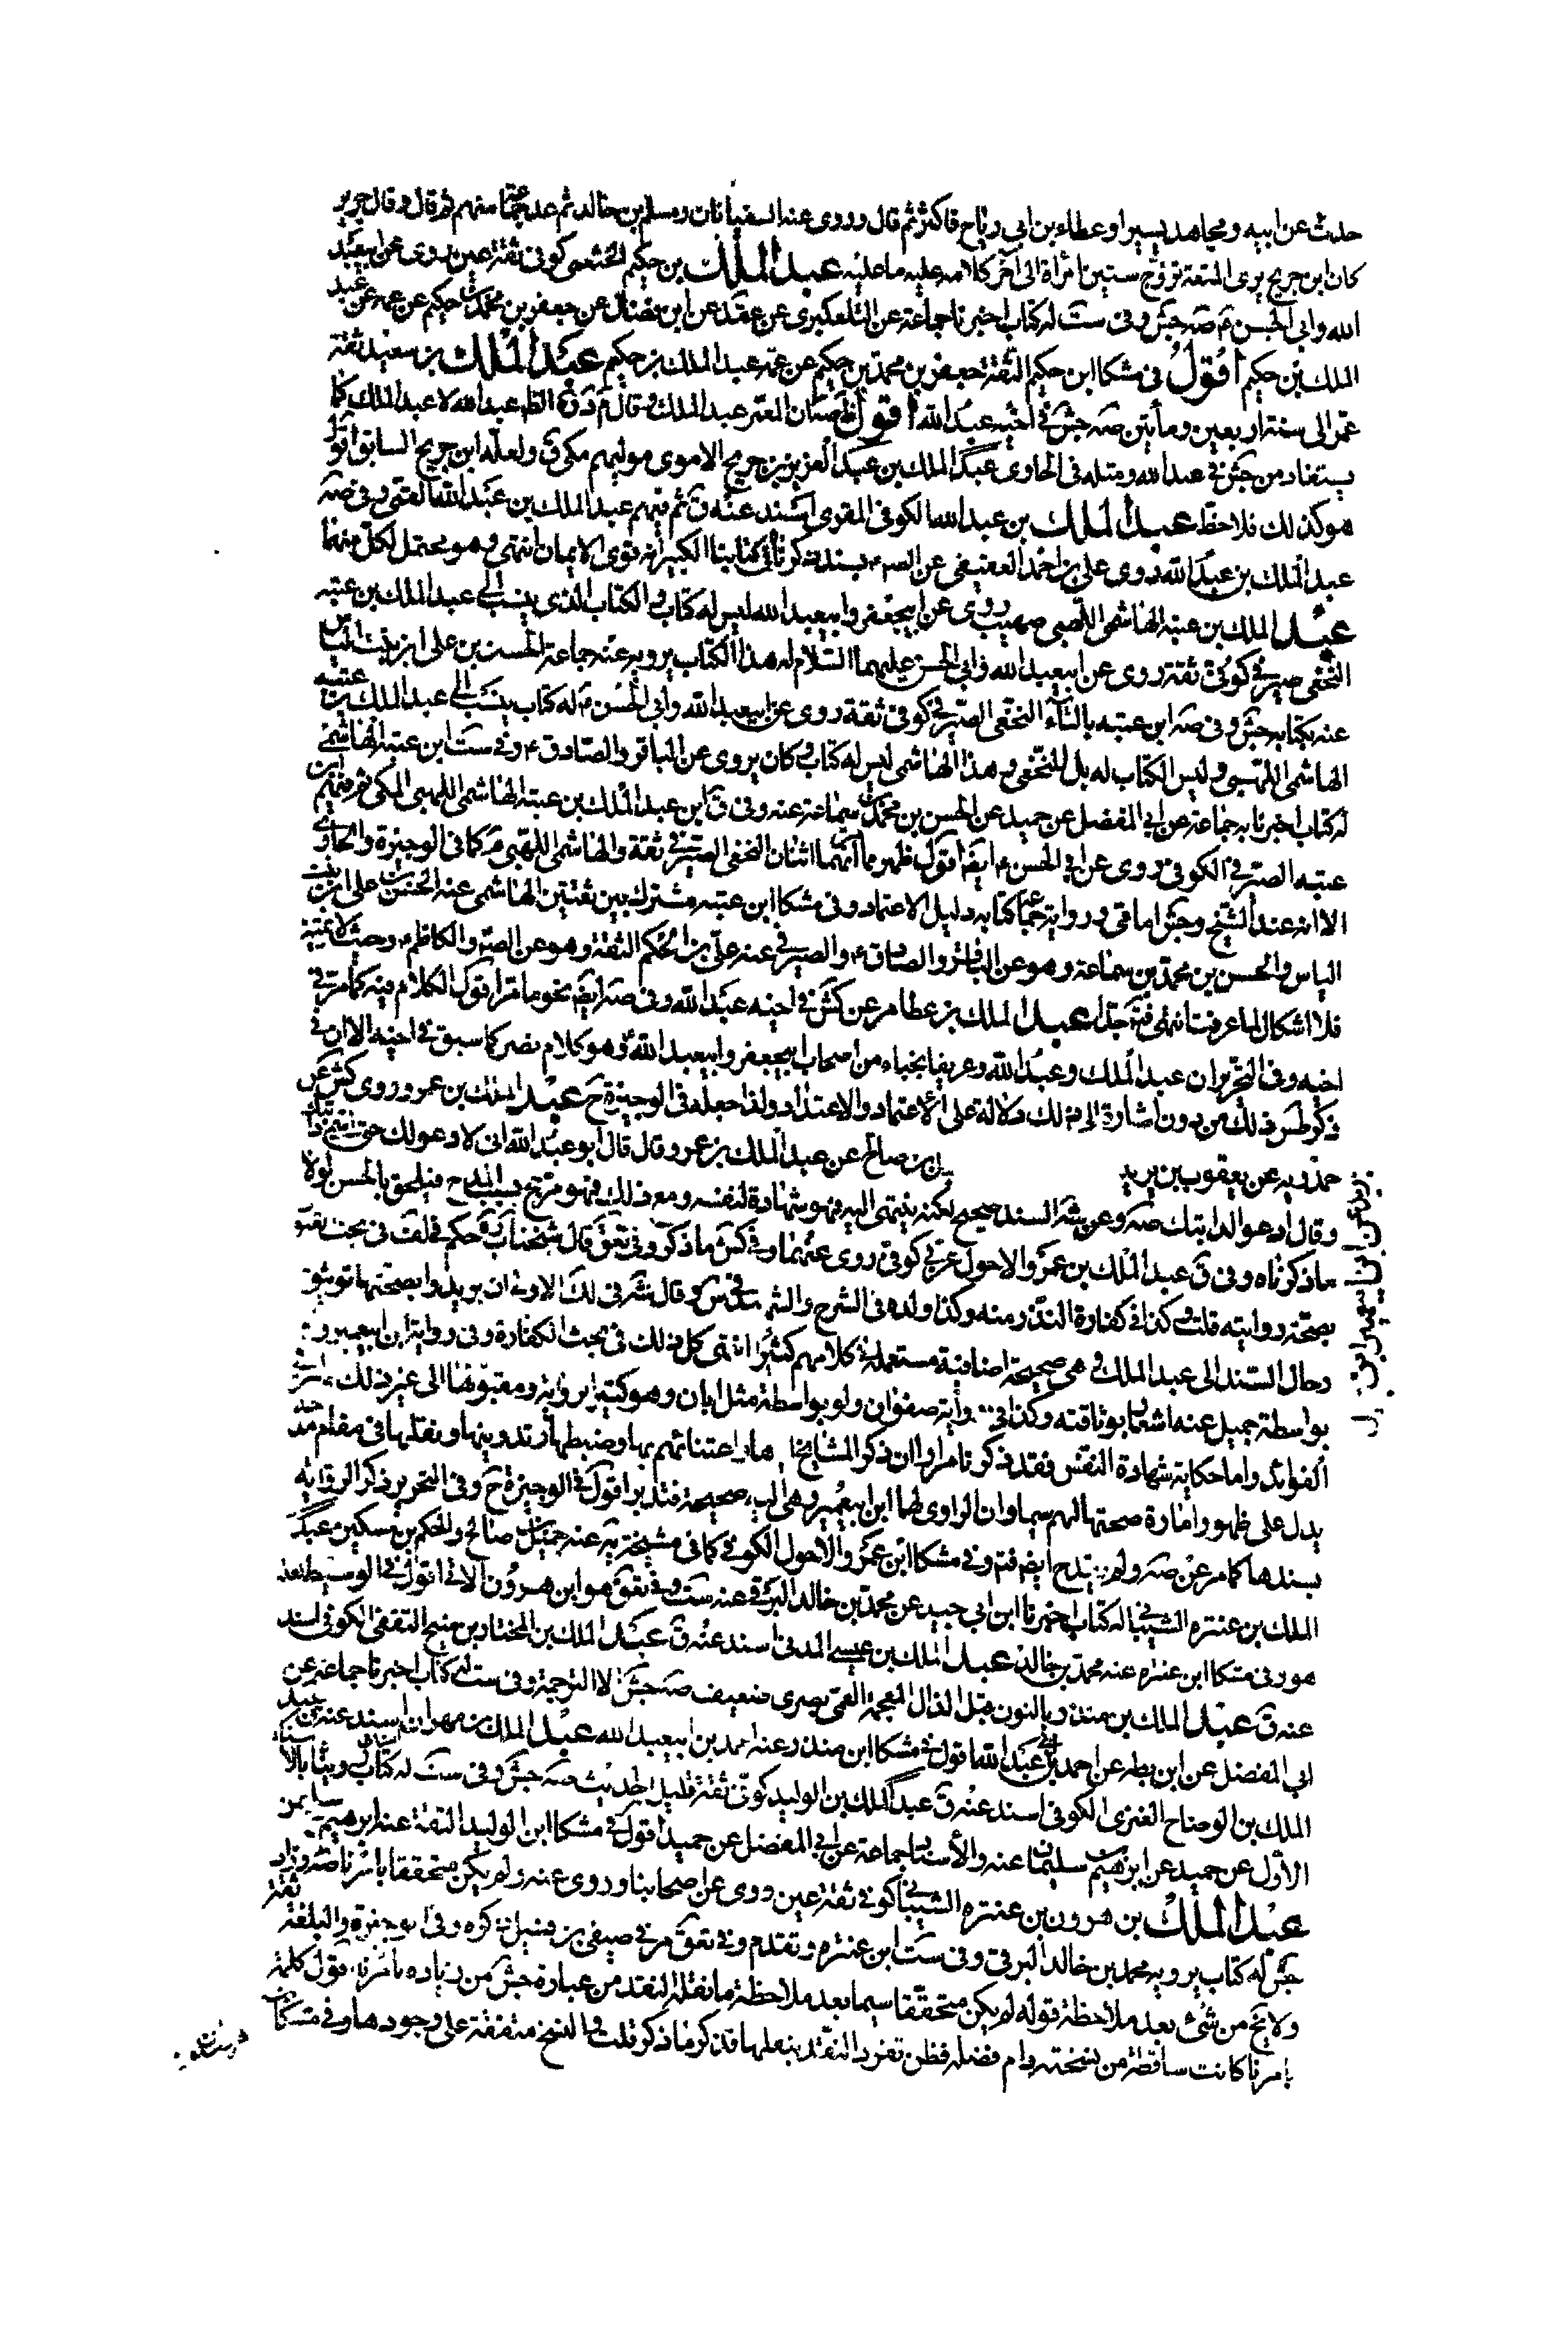 حدث عن ابيه ومجاهد يسيرا وعطاء بن ابي رباح فاكثر ثم قال وروى عنه السفيانان ومسلم بن خالد ثم عد جمعا منهم ثم قال وقال جرير
كان ابن جريج يرى المتعة تزوج ستين امرأة الى آخر كلامه عليه ما عليه عبد الملك بن حكيم الخثعمى كوفى ثقة عين روى عن ابيعبد
الله وابى الحسن ع صه جش وفى ست له كتاب اخبرنا جماعة عن التلعكبرى عن عقد عن ابن فضال عن جعفر بن محمد بن حكيم عن عمه عبد
الملك بن حكيم اقول فى مشكا ابن حكيم الثقة جعفر بن محمد بن حكيم عن عمه عبد الملك بن حكيم عبد الملك بن سعيد ثقة
عمر الى سنة اربعين ومأتين صه جش فى اخيه عبد الله اقول المعمر عبد الملك وقال الظ عبد الله لا عبد الملك كما
يستفاد من جش فى عبد الله ومثله فى الحاوى عبد الملك بن عبد العزيز بن جريج الاموى موليهم مكى ق ولعله ابن جريج السابق اقول
هو كذلك فلاحظ عبد الملك بن عبد الله الكوفى المقرى اسند عنه ق ثم فيهم عبد الملك بن عبد الله القمى وفى صه
عبد الملك بن عبد الله روى على بن احمد العقيقى عن الص ع بسند ذكرناه فى كتابنا الكبير انه قوى الايمان انتهى وهو محتمل لكل منهما
عبد الملك بن عتبة الهاشمى اللهبى صهيب روى عن ابيجعفر وابيعبد الله ليس له كتاب والكتاب الذى ينسب الى عبد الملك بن عتبة
النخعى صيرفى كوفى ثقة روى عن ابيعبد الله وابى الحسن عليهما السلام له هذا الكتاب يرويه عنه جماعة الحسن بن على ابن بنت الياس
عنه بكتابه جش وفى صه ابن عتبه بالتاء النخعى الصيرفى كوفى ثقة روى عن ابيعبد الله وابى الحسن ع له كتاب ينسب الى عبد الملك بن عتبه
الهاشمى اللهبى وليس الكتاب له بل للنخعى وهذا الهاشمى ليس له كتاب وكان يروى عن الباقر والصادق ع وفى ست ابن عتبه الهاشمى
له كتاب اخبرنا به جماعة عن ابى المفضل عن حميد عن الحسن بن محمد بن سماعة عنه وفى ق ابن عبد الملك بن عتبة الهاشمى اللهبى المكى ثم فيهم ابن
عتبه الصيرفى الكوفى روى عن ابى الحسن ع ايض اقول ظهر مما انهما اثنان النخعى الصيرفى ثقة والهاشمى اللهبى م كما فى الوجيزة والحاوى
الا انه عند الشيخ وجش امامى ورواية جماعة كتابه دليل الاعتماد وفى مشكا ابن عتبه مشترك بين ثقتين الهاشمى عنه الحسن بن على ابن بنت
الياس والحسن بن محمد بن سماعة وهو عن الباقر والصادق ع والصيرفى عنه على بن الحكم الثقة وهو عن الص والكاظم ع وحيث لا تمييز
فلا اشكال لما عرفت انتهى فتم جدا عبد الملك بن عطا مر عن كش فى اخيه عبد الله وفى صه ايض نحو ما مر اقول الكلام فيه كما مر فى
اخيه وفى التحرير ان عبد الملك وعبد الله وعريفا نجباء من اصحاب ابيجعفر وابيعبد الله ع وهو كلام نصر كما سبق فى اخيه الا ان فى
ذكر طس ذلك من دون اشارة الى ذلك دلالة على الاعتماد والاعتداد ولذا جعله فى الوجيزة ح عبد الملك بن عمرو روى كش عن
حمدويه عن يعقوب بن يزيد بن صالح عن عبد الملك بن عمرو قال قال ابو عبد الله انى لادعو لك حتى اسمى دابتك
وقال ادعو لدابتك صه وعن شه السند صحيح لكنه ينتهى اليه فهو شهادة لنفسه ومع ذلك فهو مرجح بسبب المدح فيلحق بالحسن لولا
ما ذكرناه وفى ق عبد الملك بن عمرو الاحول عربى كوفى روى عنهما وفى كش ما ذكر وفى تعق قال شيخنا حكم فى لف فى بحث
بصحة روايته قلت وكذا فى كفارة النذر منه وكذا ولده فى الشرح والشهيد فى س وقال شه فى لك الاولى ان يريدوا بصحتها توثيق
رجال السند الى عبد الملك هى صحيحة اضافية مستعملة فى كلامهم كثيرا انتهى كل ذلك فى بحث الكفارة وفى رواية ابن ابيعمير
بواسطة جميل عنه اشعار بوثاقته وكذا فى رواية صفوان ولو بواسطة مثل ابان وهو كثير الرواية ومقبولها الى غير ذلك
الفوائد واما حكاية شهادة النفس فقد ذكرنا مرارا ان ذكر المشايخ اعتنائهم بها وضبطها وتدوينها ونقلها فى مقام مدحه
يدل على ظهور وامارة صحتها لهم سيما وان الراوى لها ابن ابيعمير وهى اليه صحيحة فتدبر اقول فى الوجيزة ح وفى التحرير ذكر الرواية
بسندها كما مر عن صه ولم يقدح ايض فتم وفى مشكا ابن عمرو الاحول الكوفى كما فى مشيخة يه عنه جميل بن صالح والحكم بن مسكين عبد
الملك بن عنتره الشيبانى له كتاب اخبرنا ابن ابى جيد عن محمد بن خالد البرقى عنه ست وفى تعق هو ابن هرون الاتى اقول فى الوسيط بعده
هو وفى مشكا ابن عنتره عنه محمد بن خالد عبد الملك بن عيسى المدنى اسند عنه ق عبد الملك بن المختار بن منيح الثقفى الكوفى اسند
عنه ق عبد الملك بن منذر بالنون قبل الذال المعجمة القمى بصرى ضعيف صه جش الا الترجمة وفى ست له كتاب اخبرنا جماعة عن
ابى المفضل عن ابن بطه عن احمد بن ابى عبد الله اقول فى مشكا ابن منذر عنه احمد بن ابيعبد الله عبد الملك بن مهران اسند عنه ق عبد
الملك بن الوضاح العنزى الكوفى اسند عنه ق عبد الملك بن الوليد كوفى ثقة قليل الحديث صه جش وفى ست له كتاب رويناه بالاسناد
الاول عن حميد عن ابرهيم بن سليمان عنه والاسناد جماعة عن ابى المفضل عن حميد اقول فى مشكا ابن الوليد الثقة عنه ابرهيم بن سليمن
عبد الملك بن هرون بن عنتره الشيبانى كوفى ثقة عين روى عن اصحابنا ورووا عنه ولم يكن متحققا بامرنا صه وزاد
جش له كتاب يرويه محمد بن خالد البرقى وفى ست ابن عنتره وتقدم وفى تعق مر فى صيفى بن فسيل ذكره وفى الوجيزة والبلغة ثقة
ولا يخ من شئ بعد ملاحظة قوله لم يكن متحققا سيما بعد ملاحظة ما نقله النقد من عبارة جش من زيادة بامرنا اقول كلمة
بامرنا كانت ساقطة من نسخته دام فضله فظن تفرد النقد بنقلها فذكر ما ذكر قلت والنسخ متفقة على وجودها وفى مشكا